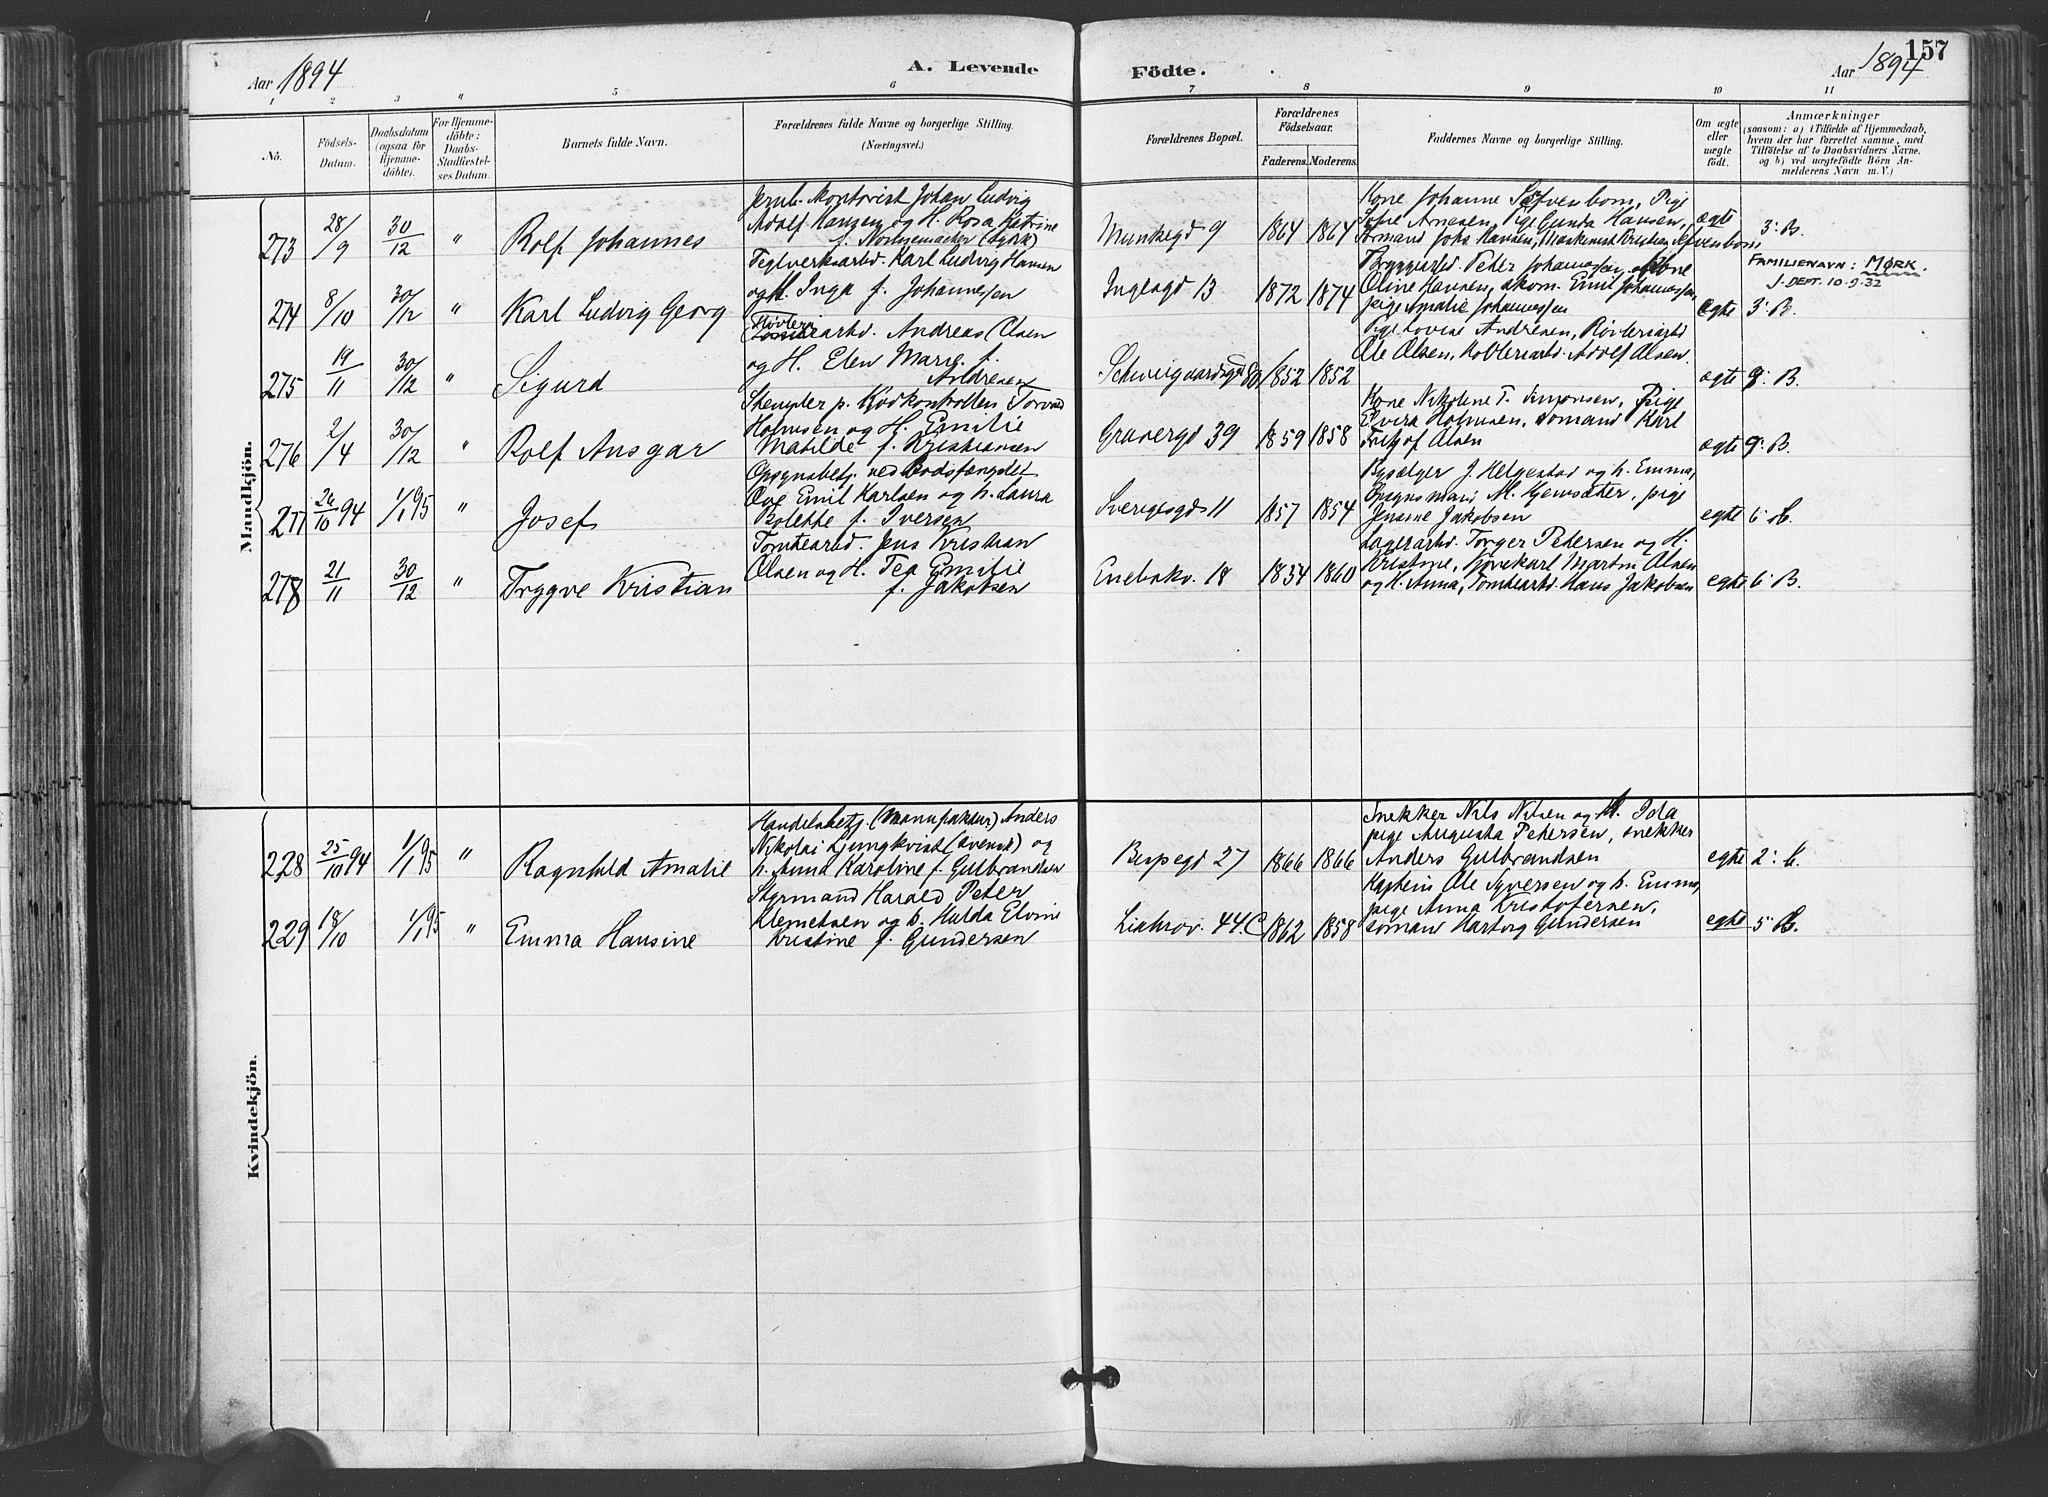 Aar 1894
A. Levende
Födte.
Aar 1894
157
1 2 3 " 5 6 7 8 9 10 11
No.
Födsels-
Datum.
Daabsdatum
(ogsaa for
Hjemme-
döbte).
For Hjemme-
döbte:
Daabs-
Stadfæstel-
ses Datum.
Barnets fulde Navn.
Forældrenes fulde Navne og borgerlige Stilling.
(Næringsvei.)
Forældrenes Bopæl.
Forældrenes
Födselsaar.
Faderens. Moderens.
Faddernes Navne og borgerlige Stilling.
Om ægte
eller
uægte
födt.
Anmærkninger
(saasom: a) i Tilfælde af Hjemmedaab,
hvem der har forrettet samme, med
Tilföielse af to Daabsvidners Navne.
og b) ved uegtefödte Börn An-
melderens Navn m.V.)
Mandkjön.
273 28/9 30/12 " Rolf Johannes
Johan Ludvig
Adolf Hansen og H. Rosa Katrine
f. (tydsk)
Munkegd 9 1864 1864
Kone Johanne Pige
Sofie Arnesen, Pige Gunda Hansen,
Formand Johs Hansen, Maskinist Kristian
ægte 3: B.
FAMILIENAVN: MØRK.
J. DEPT. 10-9-32
274 8/10 30/12 " Karl Ludvig Georg
Teglverksarbd. Karl Ludvig Hansen
og H. Inga f. Johannesen
Inglesgd 13 1872 1874
Bryggearbd. Peder Johannessen, Kone
Oline Hansen, Emil Johannessen,
pige Amalie Johannessen
ægte 3: B.
275 19/11 30/12 " Sigurd
Høvleri
arbd. Andreas Olsen
og H. Elen Marie f.
Andresen
Schweigaardsgd 80 1852 1852
Pige Lovise Andresen, Høvleriarbd
Ole Olsen, Høvleriarbd. Adolf Olsen.
ægte 9: B.
276 2/4 30/12 " Rolf Ansgar
Stempler p. Kjødkontrollen Torvald
Holmsen og H. Emilie
Matilde f. Kristiansen
Grønergd 39 1859 1858
Kone Nikoline T. Simonsen, Pige
Elvira Holmsen, sømand Karl
Fritjof Olsen
ægte 9: B.
277 26/10 94 1/1 95 " Josef
Opsynsbetj. ved Bodsfængslet
Ove Emil Karlsen og h. Laura
Bolette f. Iversen
Sverigesgd 11 1857 1854
J. Helgestad og h. Emma,
Opsynsmand M. Kjemsæter, pige
Jensine Jakobsen
egte 6:
278 21/11 30/12 " Trygve Kristian
Tomtearbd. Jens Kristian
Olsen og H. Tea Emilie
f. Jakobsen
Enebakv. 18 1854 1860
Lagerarbd. Torger Pedersen og H.
Kristine, Kjørekarl Martin Olsen
og H. Anna, Tomtearbd. Hans Jakobsen
egte 6: B.
Kvindekjön.
228 25/10 94 1/1 95 " Ragnhild Amalie
Handelsbetj. (Manufaktur) Anders
Nikolai Ljungkvist (svensk) og
h. Anna Karoline f. Gulbrandsen
Bispegd 27 1866 1866
Snekker Nils Nilsen og H. Ida
pige Augusta Petersen, snekker
Anders Gulbrandsen
egte 2:
229 18/10 1/1 95 " Emma Hansine
Styrmand Harald Peter
Klemetsen og h. Hulda Elvine
Kristine f. Gundersen
Liabrov. 44.C 1862 1858
Kaptein Ole Syversen og h. Emma,
pige Anna Kristofersen,
sømand Hartvig Gundersen
egte 5